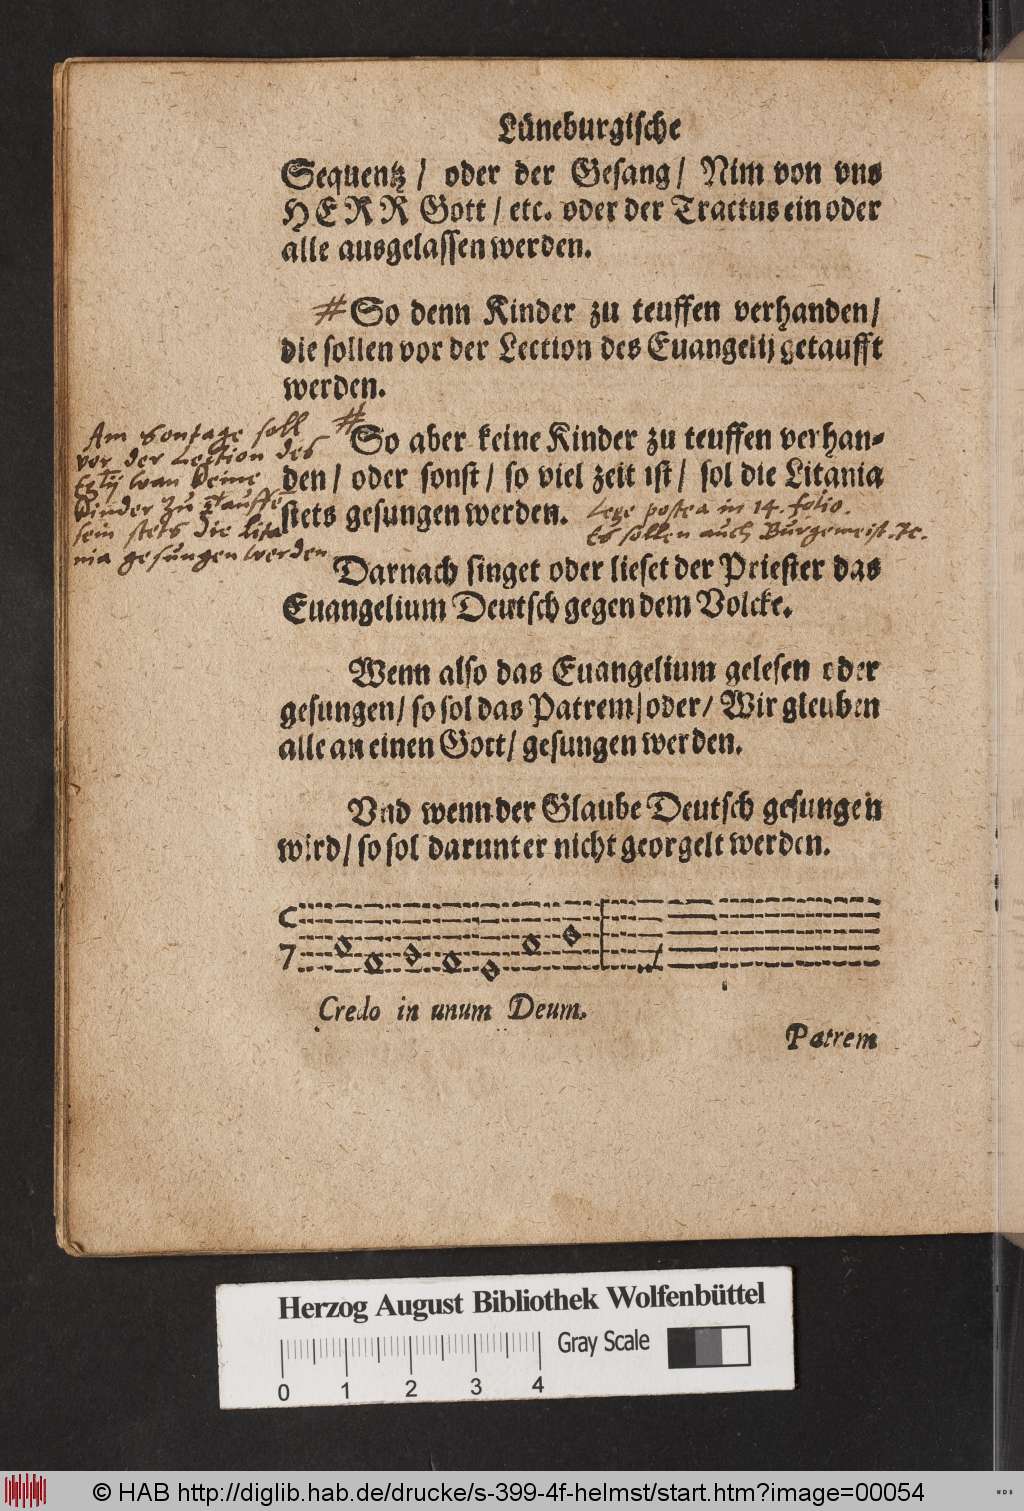 Lüneburgische
Sequentz / oder der Gesang / Nim von vns
HERR Gott / etc. oder der Tractus ein oder
alle ausgelassen werden.
# So denn Kinder zu teuffen verhanden /
die sollen vor der Lection des Euangelij getaufft
werden.
# So aber keine Kinder zu teuffen verhan-
den / oder sonst / so viel zeit ist / sol die Litania
stets gesungen werden.
Am Sontage soll
vor der Lection des
wan keine
Kinder zu
sein stets die lita
nia gesungen werden
Lege postea in 14. folio.
Es sollen auch Burgemeist.
Darnach singet oder lieset der Priester das
Euangelium Deutsch gegen dem Volcke.
Wenn also das Euangelium gelesen oder
gesungen / so sol das Patrem / oder / Wir gleuben
alle an einen Gott / gesungen werden.
Vnd wenn der Glaube Deutsch gesungen
wird / so sol darunter nicht georgelt werden.
Credo in unum Deum.
Patrem
Herzog August Bibliothek Wolfenbüttel
Gray Scale
0 1 2 3 4
© HAB http://diglib.hab.de/drucke/s-399-4f-helmst/start.htm?image=00054